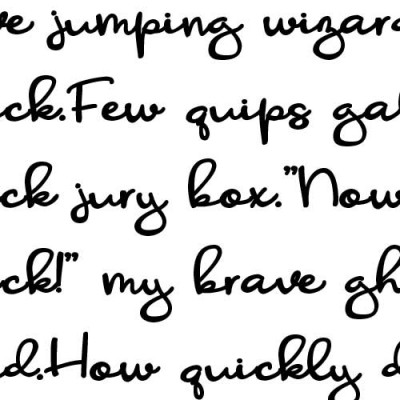 ve jumping wizar
ck.Few quips ga
ck jury box."Now
ck!" my brave gh
d.How quickly d